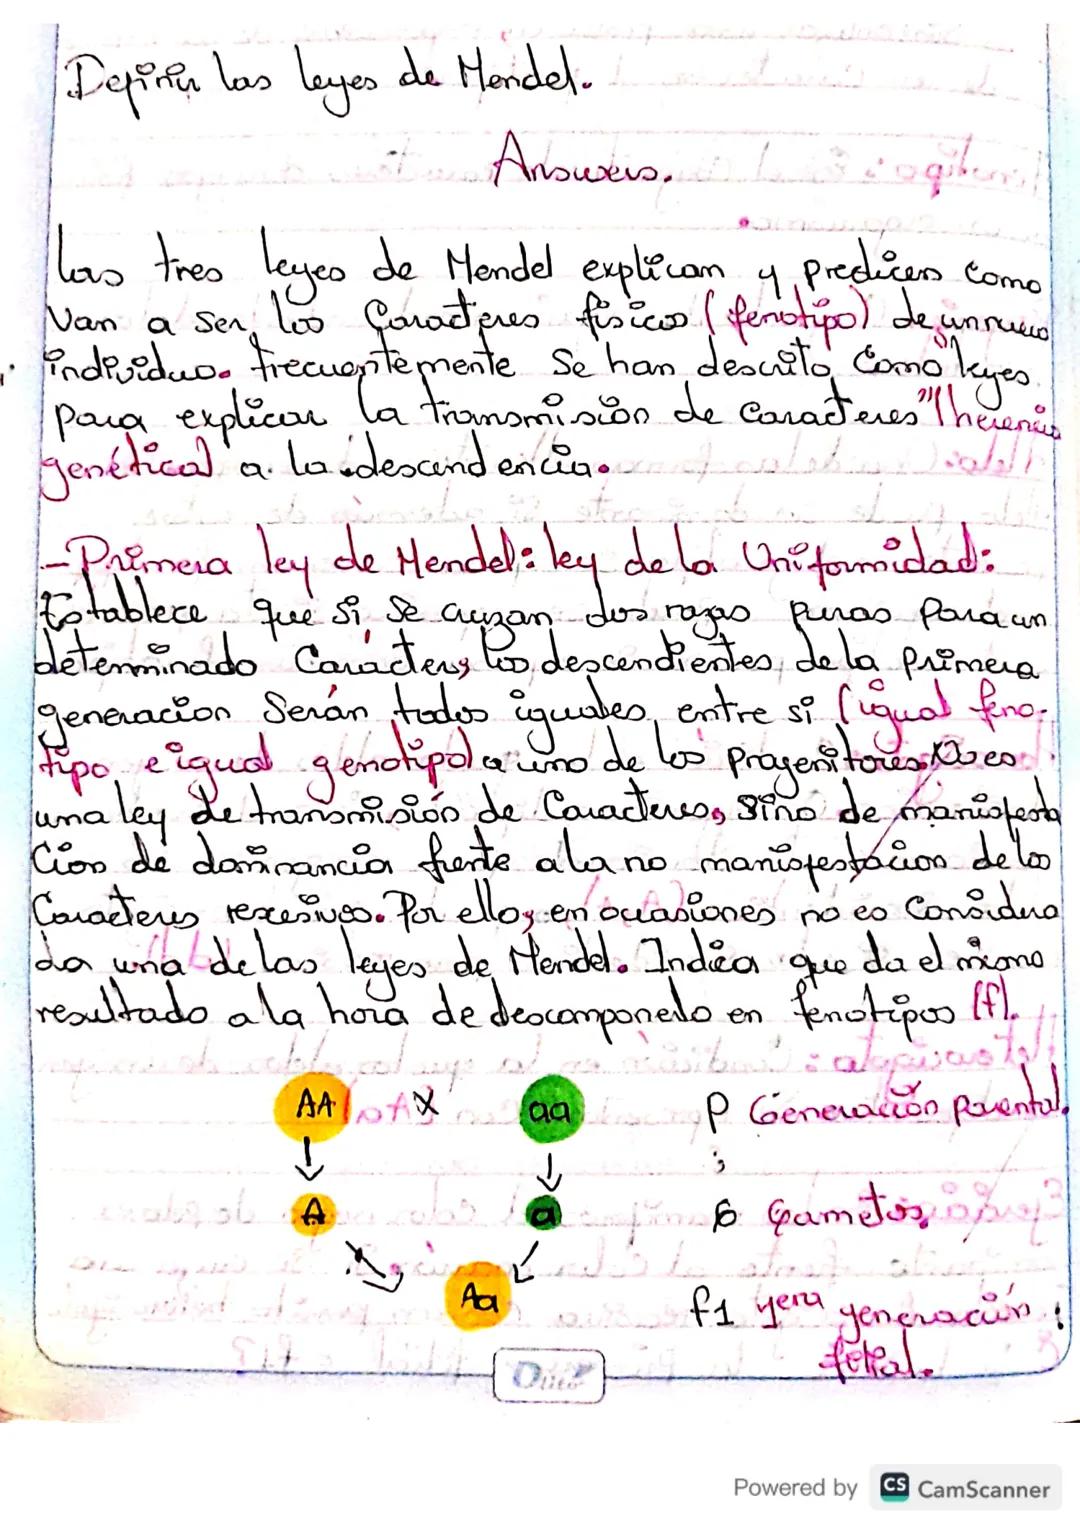 Definir las leyes de Mendel.
Answers.
Las tres leyes de Mendel explican y predicen como
van a ser los Caracteres físicos (fenotipo) de un nuevo
individuo. frecuentemente Se han descrito Como "leyes
para explicar la transmisión de caracteres" (herencia
genética) a la descendencia.
- Primera ley de Mendel: ley de la Uniformidad:
Establece que si Se cruzan dos razas puras para un
determinado Carácter, los descendientes de la primera
generacion Serán todos iguales entre si (igual feno-
tipo e igual genotipo) a uno de los progenitores. No es
una ley de transmisión de Caracteres, Sino de manifesta
Cion de dominancia frente a la no manifestacion de los
Caracteres recesivos. Por ello, en ocasiones no es Considera
da una de las leyes de Mendel. Indica que da el mismo
resultado a la hora de descomponerlo en fenotipos (f).
AA X aa P Generación parental.
A a G Gametos.
Aa f1 1era generación
filial.
Powered by CS CamScanner